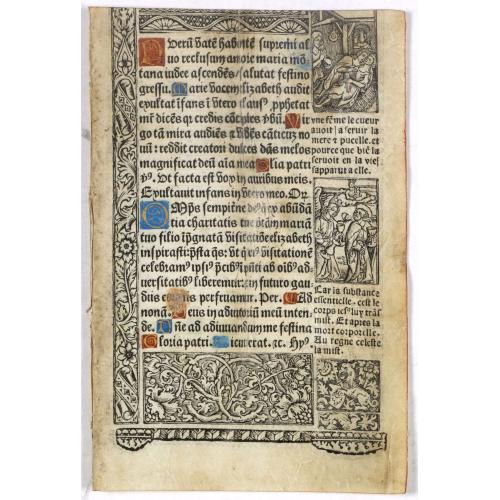 Nverū vatē habētē supremi al
uo reclusum anoie maria mō
tana iudee ascendēs/salutat festino
gressu. Marie vocem elizabeth audit
exultat īfans ī vtero clausꝰ, pphetat
mr̄ dicēs qꝛ credis
go tā mira audiēs
nū: reddit creatori dulces dās melos
magnificat deū aīa mea. Gloria patri
℣ꝰ. Ut facta est vox in auribus meis.
Exultauit infans in vtero meo. Oꝛ.
OMp̄s sempitne deꝰ q̄ ex abūdā
tia charitatis tue btām mariā
tuo filio īpgnatā visitatiōe elizabeth
inspirasti: pr̄sta q̄s: vt q̄ eiꝰ visitationē
celebramꝰ ipsiꝰ pcibꝰ īpūti ab oībꝰ ad
uersitatibꝰ liberemur: ⁊ in futuro gau
diis perfruamur. Per. Ad
nonā. Deus in adiutoriū meū inten
de. Dn̄e ad adiuuandum me festina
Gloria patri. Sicut erat. ⁊c. Hyꝰ
vne fēme le cueur
auoit / a seruir la
mere ⁊ pucelle. et
pource que biē la
seruoit en la vieſ
sapparut a elle.
Car la substance
essentielle. cest le
corps iesꝰ luy trās
mist. Et apres la
mort corporelle.
Au regne celeste
la mist.